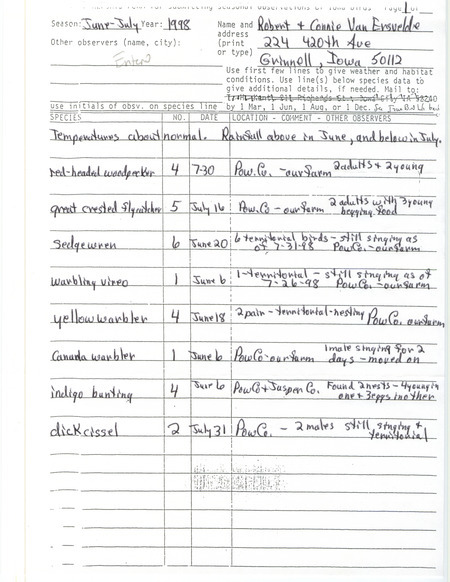 Season: June-July Year: 1998 Name and Robert & Connie Van Ersvelde
address
Other observers (name, city): (print 224 420th Ave
or type) Grinnell, Iowa 50112
Entered
Use first few lines to give weather and habitat
conditions. Use line(s) below species data to
give additional details, if needed. Mail to:
use initials of obsv. on species line by 1 Mar, 1 Jun, 1 Aug, or 1 Dec.
SPECIES NO. DATE LOCATION - COMMENT - OTHER OBSERVERS
Temperatures about normal. Rainfall above in June, and below in July.
red-headed woodpecker 4 7-30 Pow. Co. - our farm 2 adults & 2 young
great crested flycatcher 5 July 16 Pow. Co - our farm 2 adults with 3 young
begging food
Sedge wren 6 June 20 6 territorial birds - still singing as
of 7-31-98 Pow Co. - our farm
Warbling vireo 1 June 6 1-territorial - still singing as of
7-26-98 Pow Co. - our farm
yellow warbler 4 June 18 2 pair - territorial - nesting Pow Co. our farm
Canada warbler 1 June 6 Pow Co - our farm 1 male singing for 2
days - moved on
indigo bunting 4 6 Pow Co & Jasper Co. Found 2 nests - 4 young in
one & 3 eggs in other
dickcissel 2 July 31 Pow Co. - 2 males still singing &
territorial